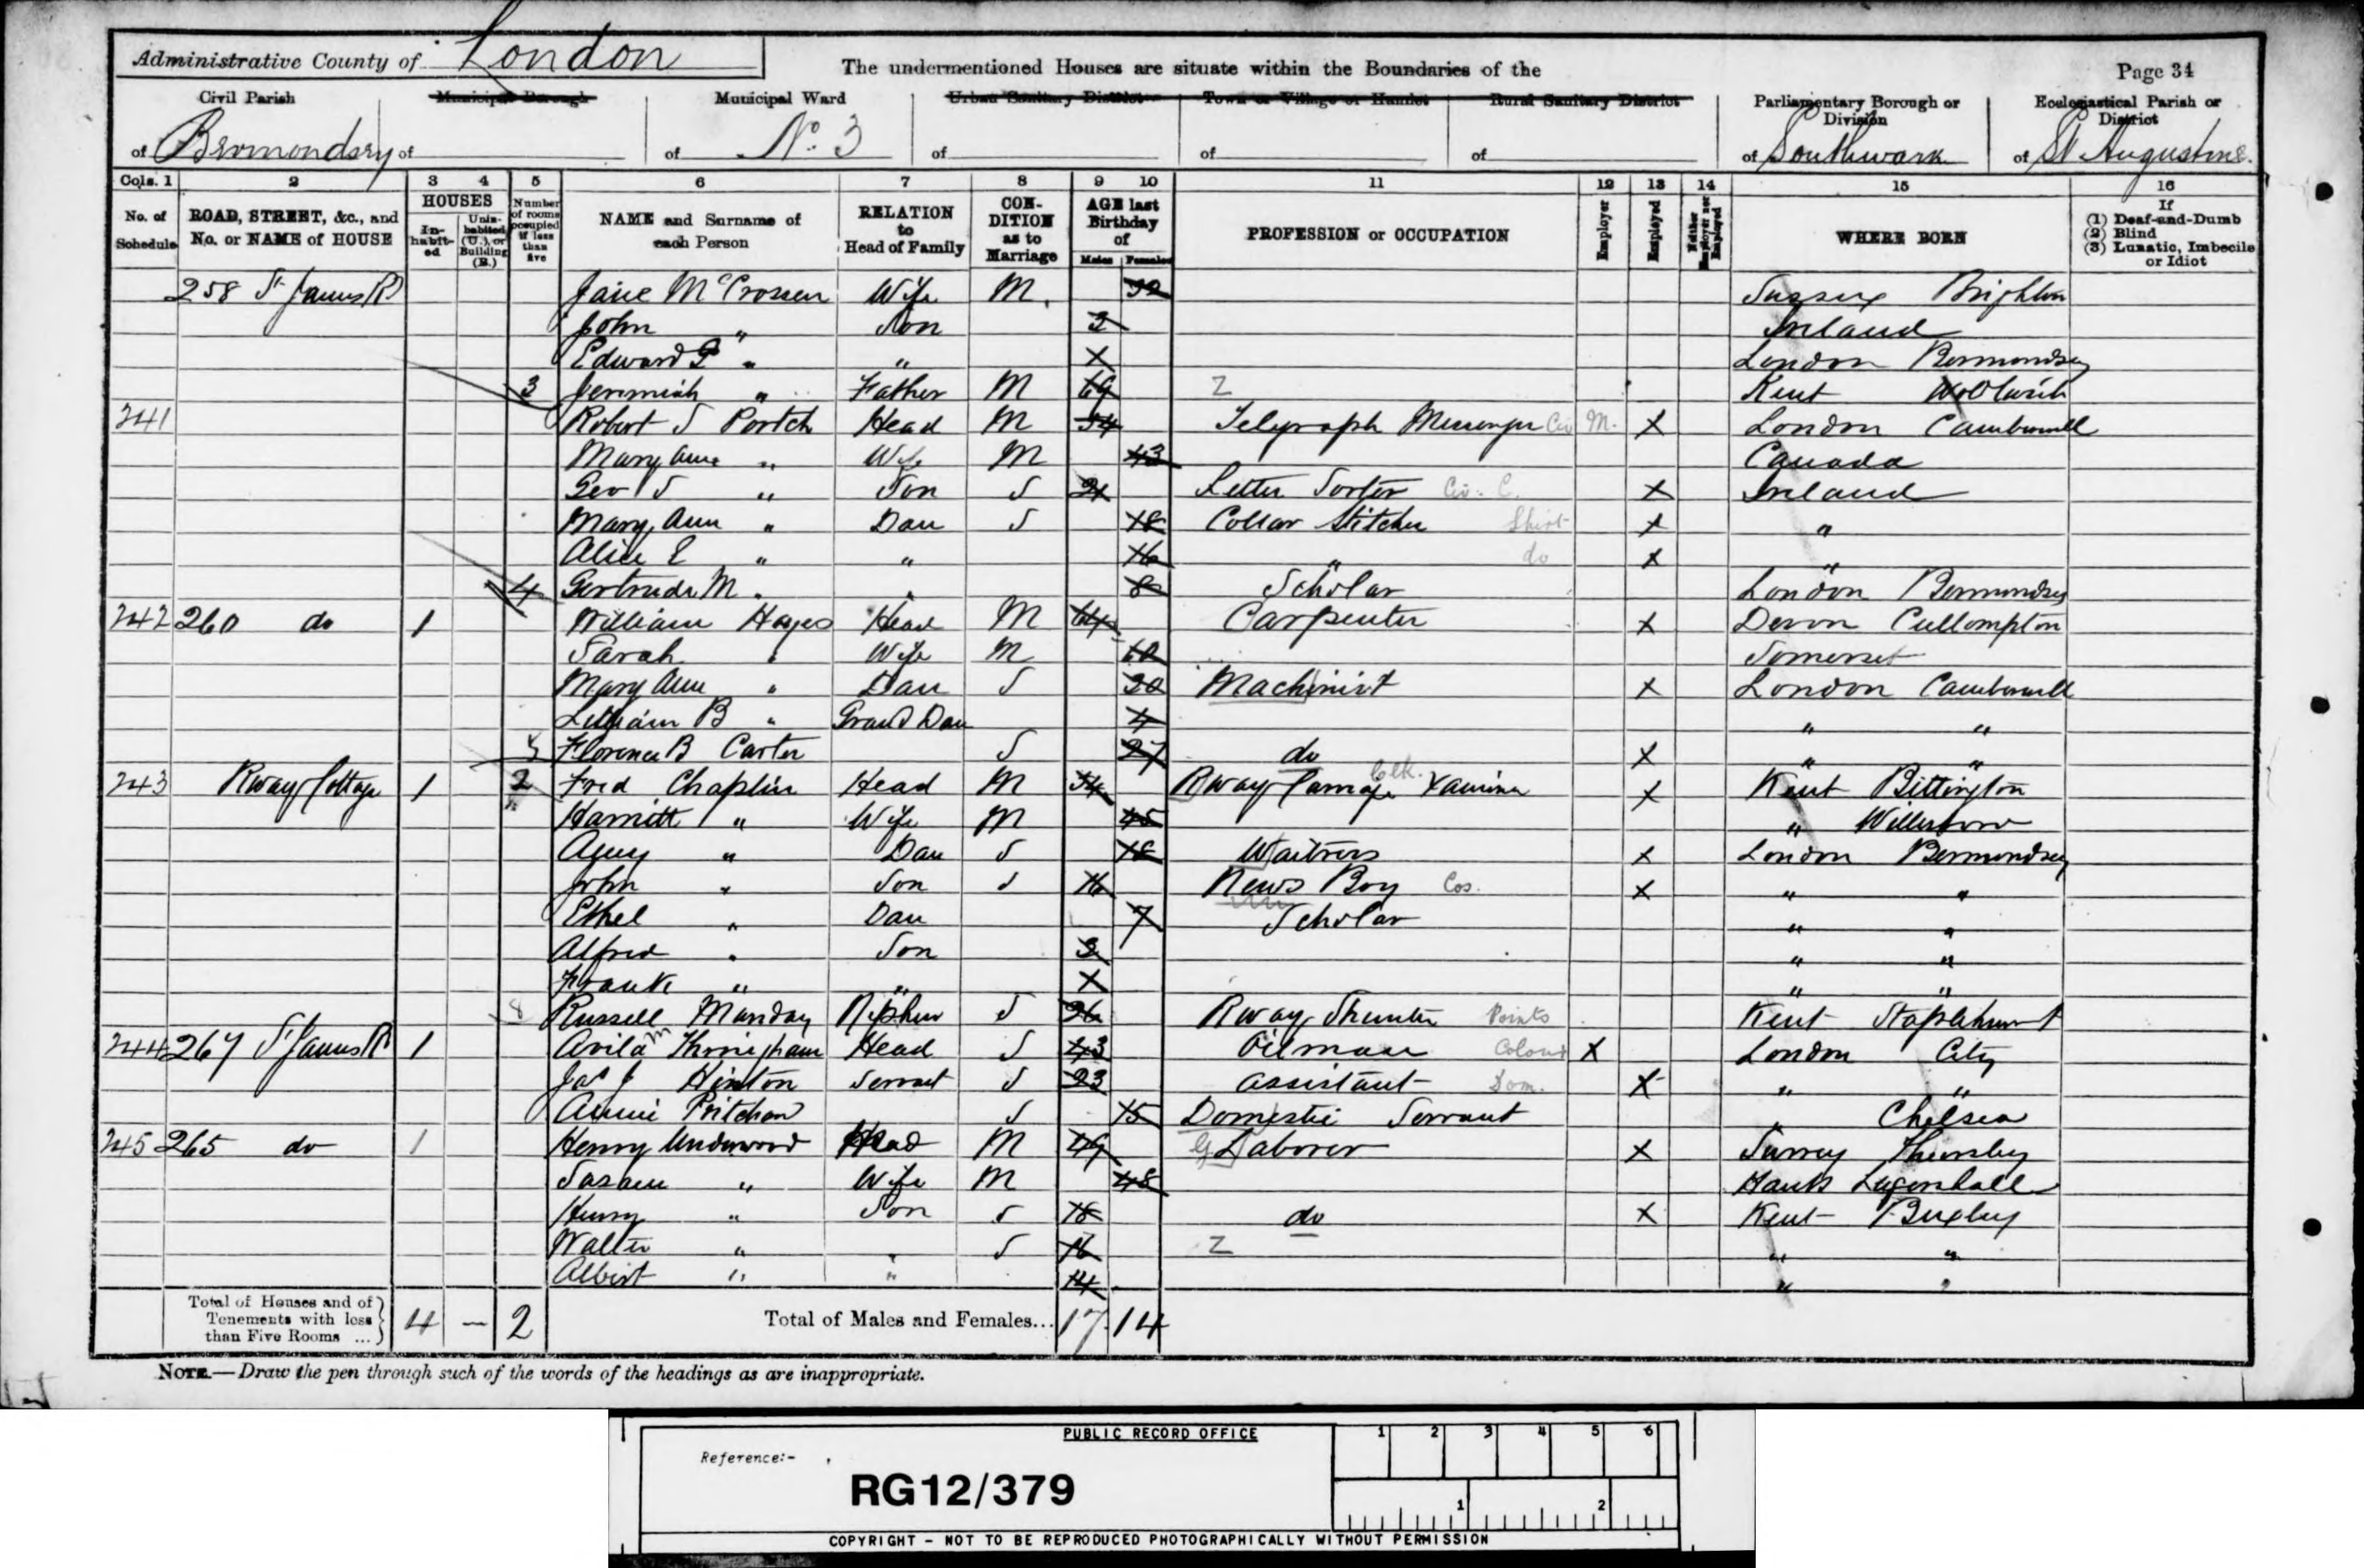 Administrative County of London
The undermentioned Houses are situate within the Boundaries of the
Page 34
Civil Parish of Bermondsey
Municipal Borough of
Municipal Ward of No. 3
Urban Sanitary District of
Town or Village or Hamlet of
Rural Sanitary District of
Parliamentary Borough or Division of Southwark
Ecclesiastical Parish or District of St Augustine
Cols. 1 2 3 4 5 6 7 8 9 10 11 12 13 14 15 16
No. of Schedule
ROAD, STREET, &c., and No. or NAME of HOUSE
HOUSES
Inhabited
Uninhabited (U.), or Building (B.)
Number of rooms occupied if less than five
NAME and Surname of each Person
RELATION to Head of Family
CONDITION as to Marriage
AGE last Birthday of
Males Females
PROFESSION or OCCUPATION
Employer
Employed
Neither Employer nor Employed
WHERE BORN
If (1) Deaf-and-Dumb (2) Blind (3) Lunatic, Imbecile or Idiot
258 St James Rd Jane McCrossen Wife M. 32 Sussex Brighton
John " Son 2 Ireland
Edward " " X London Bermondsey
3 Jeremiah " Father M 69 Z Kent Woolwich
241 Robert S Portch Head M 54 Telegraph Messenger Civ M. X London Camberwell
Mary Ann " Wife M 43 Canada
Geo S " Son S 21 Letter Sorter Civ. C. X Ireland
Mary Ann " Dau S 18 Collar Stitcher Shirt X "
Alice E " " 16 " do X "
4 Gertrude M " " 8 Scholar London Bermondsey
242 260 do 1 William Hayes Head M 64 Carpenter X Devon Cullompton
Sarah " Wife M Somerset
Mary Ann " Dau S Machinist X London Camberwell
B " Grand Dau 4 " "
Florence B Carter S 27 do X " "
243 Rway Cottage 1 2 Fred Chaplin Head M 54 Rway Carriage Xaminer X Kent
" Wife M 45 " Willesboro
" Dau S 18 Waitress X London Bermondsey
John " Son S 16 News Boy Cos. X " "
Ethel " Dau 7 Scholar " "
Alfred " Son 3 " "
Frank " " X " "
8 Russell Manday Nephew S 26 Rway Shunter Points Kent Staplehurst
244 267 St James Rd 1 Avila m Head S 43 Oilman Colour X London City
Jas J Hinton Servant S 23 Assistant Dom. X " "
Annie S 15 Domestic Servant " Chelsea
245 265 do 1 Henry Underwood Head M 49 G Laborer X Surrey Thursley
" Wife M 48 Hants
Henry " Son S 18 do X Kent
Walter " " S 16 Z " "
Albert " " 14 " "
Total of Houses and of Tenements with less than Five Rooms ... 4 — 2
Total of Males and Females... 17 14
NOTE.—Draw the pen through such of the words of the headings as are inappropriate.
PUBLIC RECORD OFFICE
1 2 3 4 5 6
Reference:-
RG12/379
1 2
COPYRIGHT - NOT TO BE REPRODUCED PHOTOGRAPHICALLY WITHOUT PERMISSION